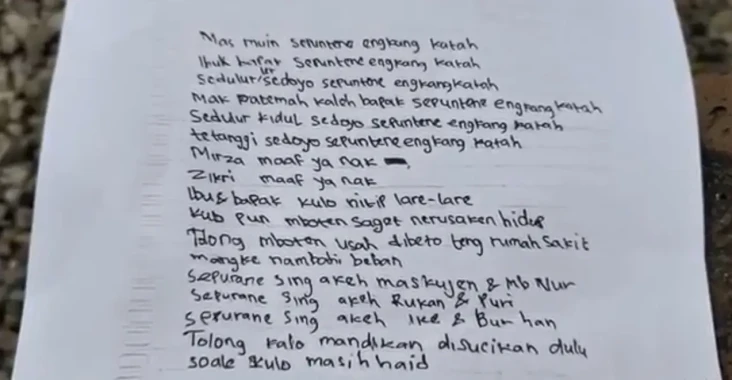 Mas muin sepuntene engkang katah
Ibuk bapak sepuntene engkang katah
Sedulur ur sedoyo sepuntene engkang katah
Mak patemah kaleh bapak sepuntene engkang katah
Sedulur kidul sedoyo sepuntene engkang katah
tetanggi sedoyo sepuntene engkang katah
Mirza maaf ya nak
Zikri maaf ya nak
Ibu & bapak kulo nitip lare-lare
kulo pun mboten saget nerusaken hidup
Tolong mboten usah dibeto teng rumah sakit
mangke nambahi beban
Sepurane sing akeh mas kujen & Mb Nur
Sepurane sing akeh Rukan & Puri
sepurane sing akeh Ike & Burhan
Tolong kalo mandikan disucikan dulu
soale kulo masih haid